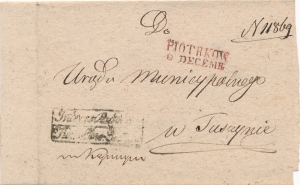 Do
N 11869
PIOTRKOW
6 DECEMB
Urzędu Municypalnego
w Tuszynie